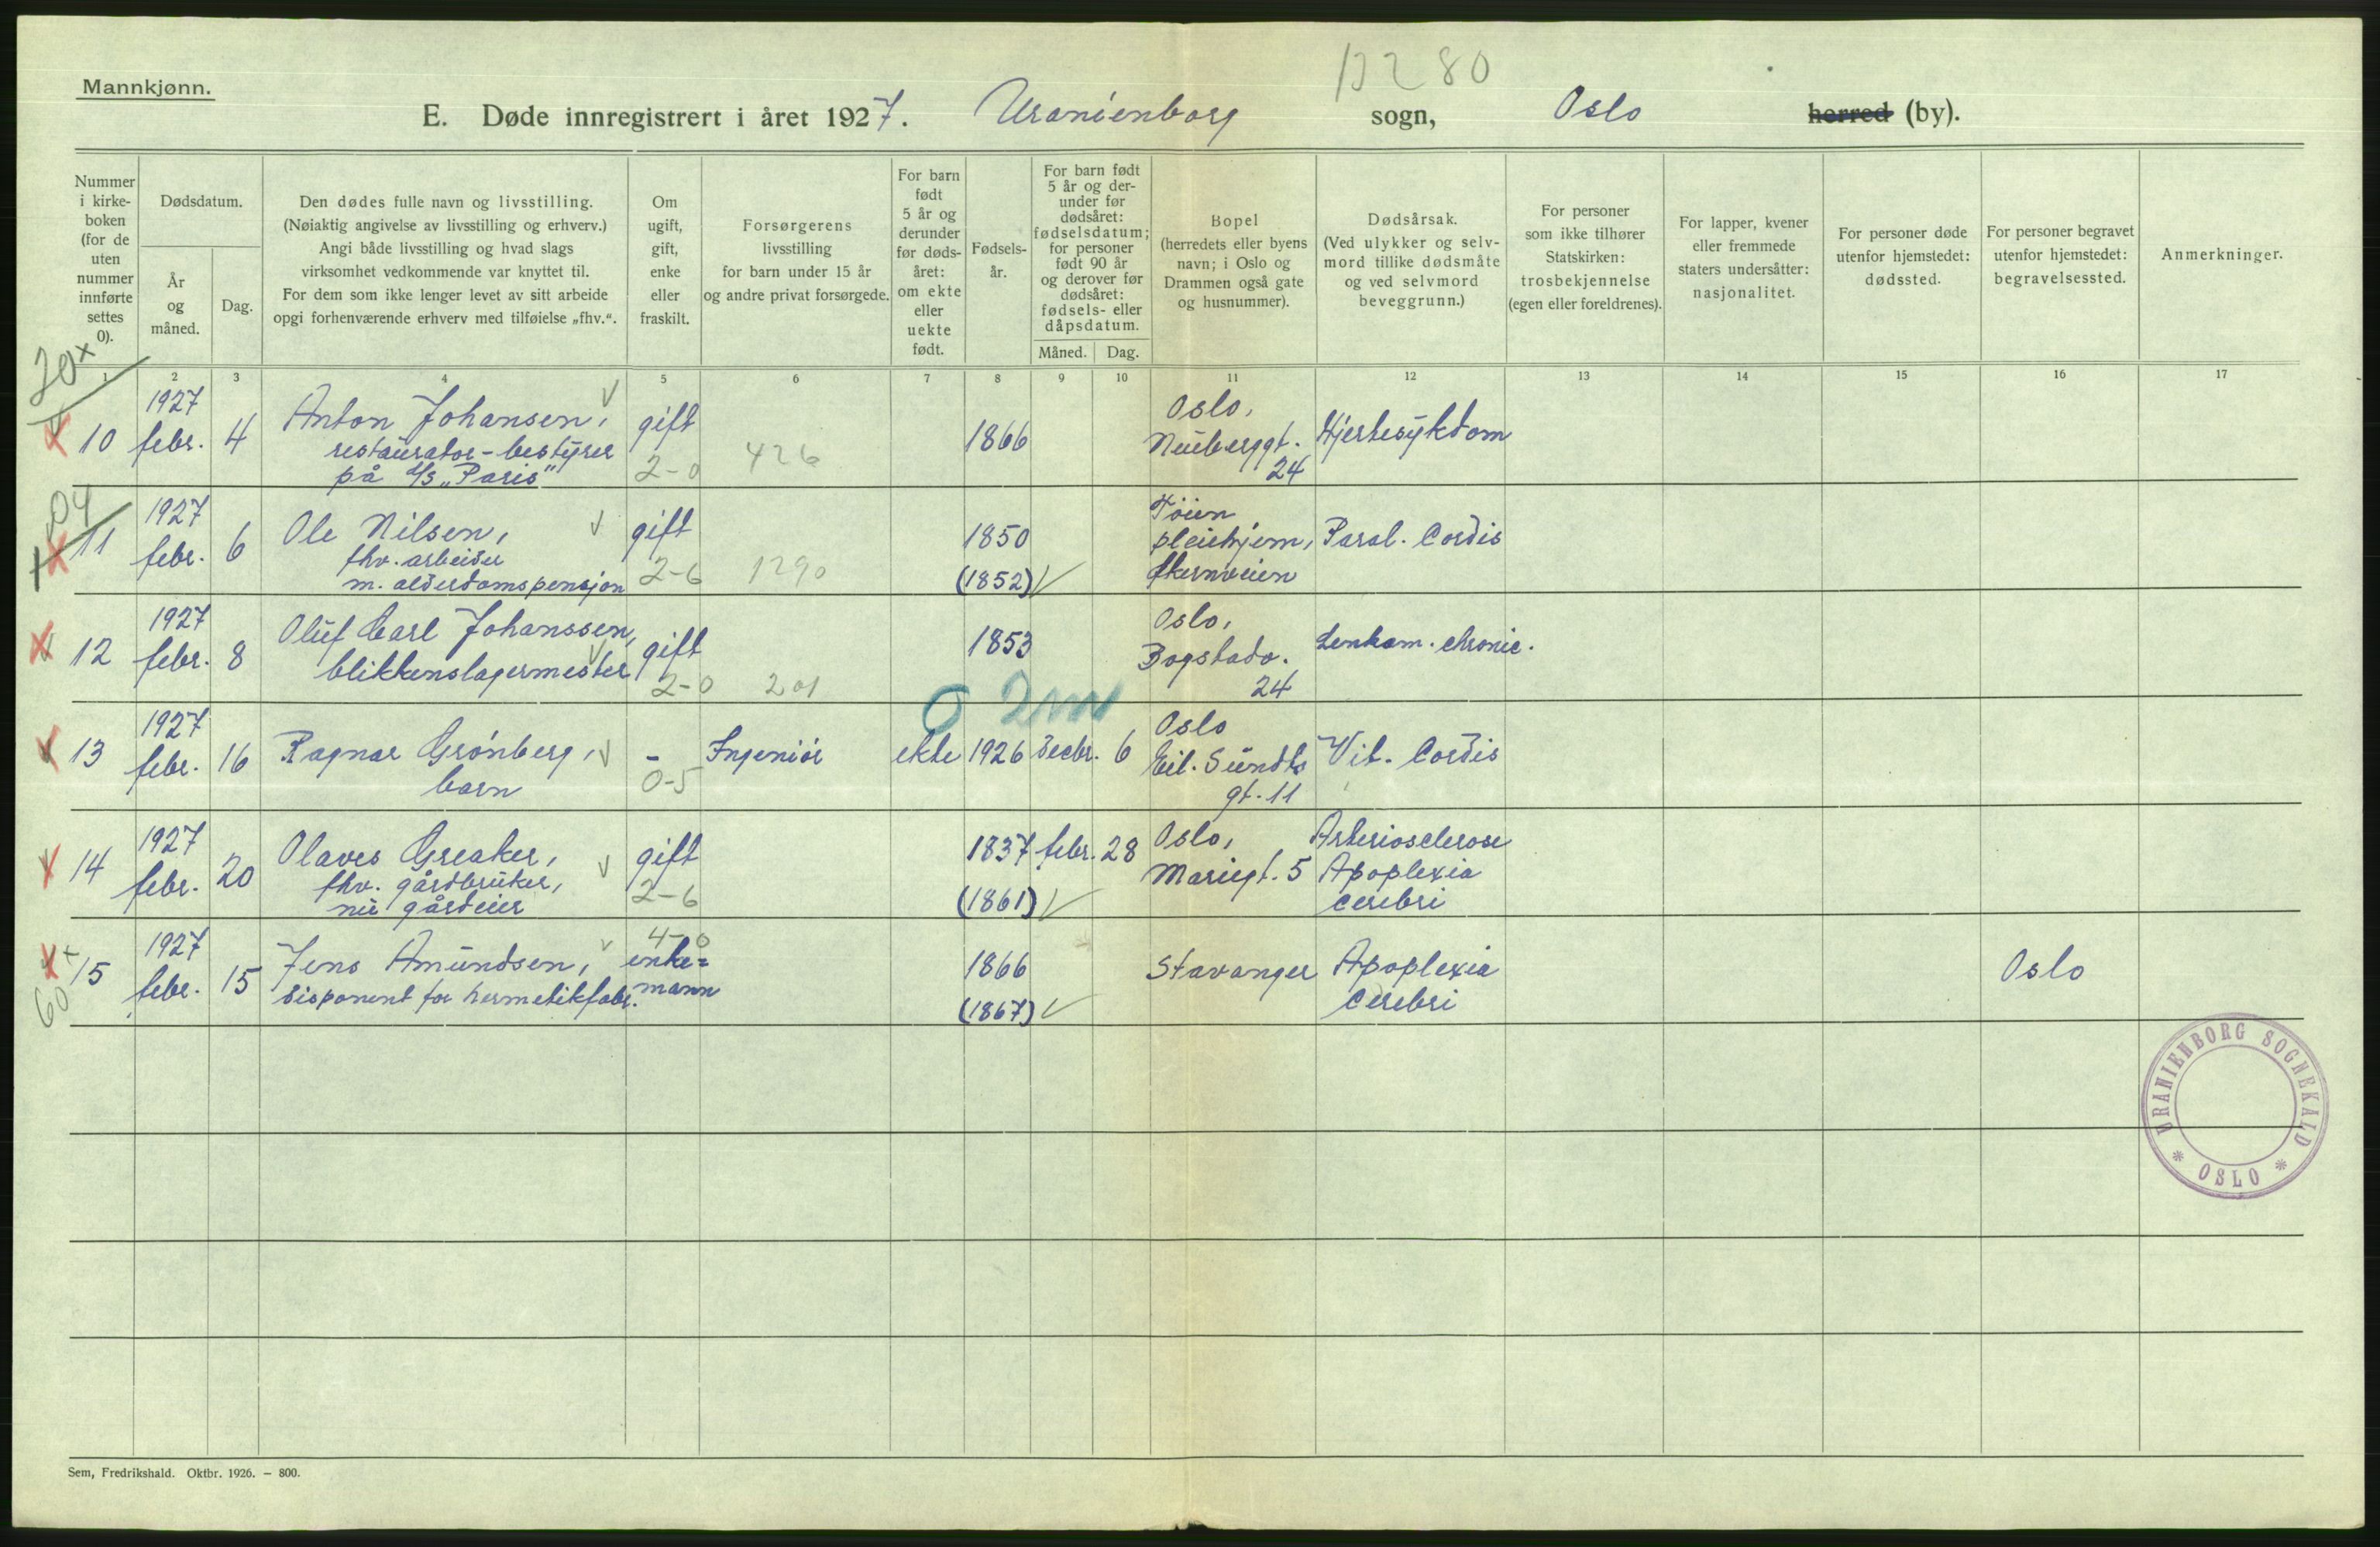 Mannkjønn.
E. Døde innregistrert i året 1927. Uranienborg sogn, Oslo herred (by).
Nummer i kirke-boken (for de uten nummer innførte settes 0).
Dødsdatum.
År og måned.
Dag.
Den dødes fulle navn og livsstilling.
(Nøiaktig angivelse av livsstilling og erhverv.)
Angi både livsstilling og hvad slags
virksomhet vedkommende var knyttet til.
For dem som ikke lenger levet av sitt arbeide
opgi forhenværende erhverv med tilføielse „fhv.“.
Om ugift, gift, enke eller fraskilt.
Forsørgerens
livsstilling
for barn under 15 år
og andre privat forsørgede.
For barn født 5 år og derunder før døds-året: om ekte eller uekte født.
Fødsels-år.
For barn født 5 år og der-under før dødsåret: fødselsdatum; for personer født 90 år og derover før dødsåret: fødsels- eller dåpsdatum.
Måned. Dag.
Bopel
(herredets eller byens
navn; i Oslo og
Drammen også gate
og husnummer).
Dødsårsak.
(Ved ulykker og selv-
mord tillike dødsmåte
og ved selvmord
beveggrunn.)
For personer
som ikke tilhører
Statskirken:
trosbekjennelse
(egen eller foreldrenes).
For lapper, kvener
eller fremmede
staters undersåtter:
nasjonalitet.
For personer døde
utenfor hjemstedet:
dødssted.
For personer begravet
utenfor hjemstedet:
begravelsessted.
Anmerkninger.
1 2 3 4 5 6 7 8 9 10 11 12 13 14 15 16 17
10 1927 febr. 4 Anton Johansen, gift 1866 Oslo, Hjertesykdom
restauratør-bestyrer Neuberggt.
på D/S „Paris“ 2-0 426 24
11 1927 febr. 6 Ole Nilsen, gift 1850 Tøien Paral. Cordis
fhv. arbeider pleiehjem,
m. alderdomspensjon 2-6 1290 (1852) Økernveien
12 1927 febr. 8 Oluf Carl Johanssen, gift 1853 Oslo, Lenkam. chronic.
blikkenslagermester Bogstadv.
2-0 201 24
13 1927 febr. 16 Ragnar Grønberg, - Ingeniør ekte 1926 decbr. 6 Oslo Vit. Cordis
barn 0-5 Eil. Sundts
gt. 11
14 1927 febr. 20 Olaves Greaker, gift 1837 febr. 28 Oslo, Arteriosclerose
fhv. gårdbruker, Mariegt. 5 Apoplexia
nu gårdeier 2-6 (1861) cerebri
15 1927 febr. 15 Jens Amundsen, enke= 1866 Stavanger Apoplexia Oslo
disponent for hermetikfabr. mann 4-0 (1867) cerebri
60
URANIENBORG SOGNEKALD
* OSLO *
Sem, Fredrikshald. Oktbr. 1926. – 800.